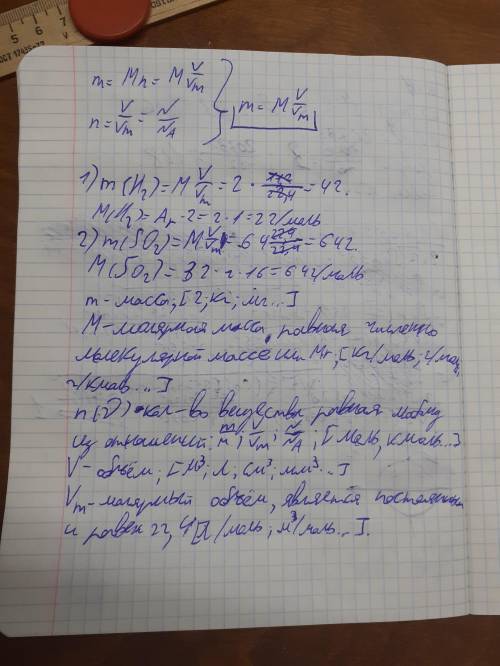 m = Mn = M V/Vm
n = V/Vm = N/NA
m = M V/Vm
1) m(H₂) = M V/Vm = 2 · /22,4 = 4г.
M(H₂) = Ar · 2 = 2 · 1 = 2г/моль
2) m(SO₂) = M V/Vm = 64 22,4/22,4 = 64г.
M(SO₂) = 32 + 2 · 16 = 64г/моль
m - масса, [г; кг; мг...]
M - молярная масса, равная численно
молекулярной массе или Mr, [кг/моль; г/моль,
г/кмоль...]
n(ν) - кол-во вещества, равная
из отношений: m/M; V/Vm; N/NA; [моль, кмоль...]
V - объём, [м³, л, см³, мм³...]
Vm - молярный объём, является постоянным
и равен 22,4 [л/моль; м³/моль...].
5 6 7
ГОСТ 17435-72